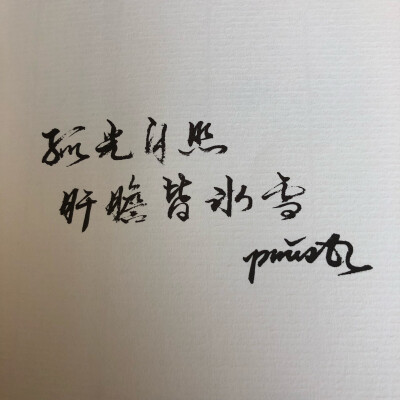 孤光自照
肝胆皆冰雪
priest